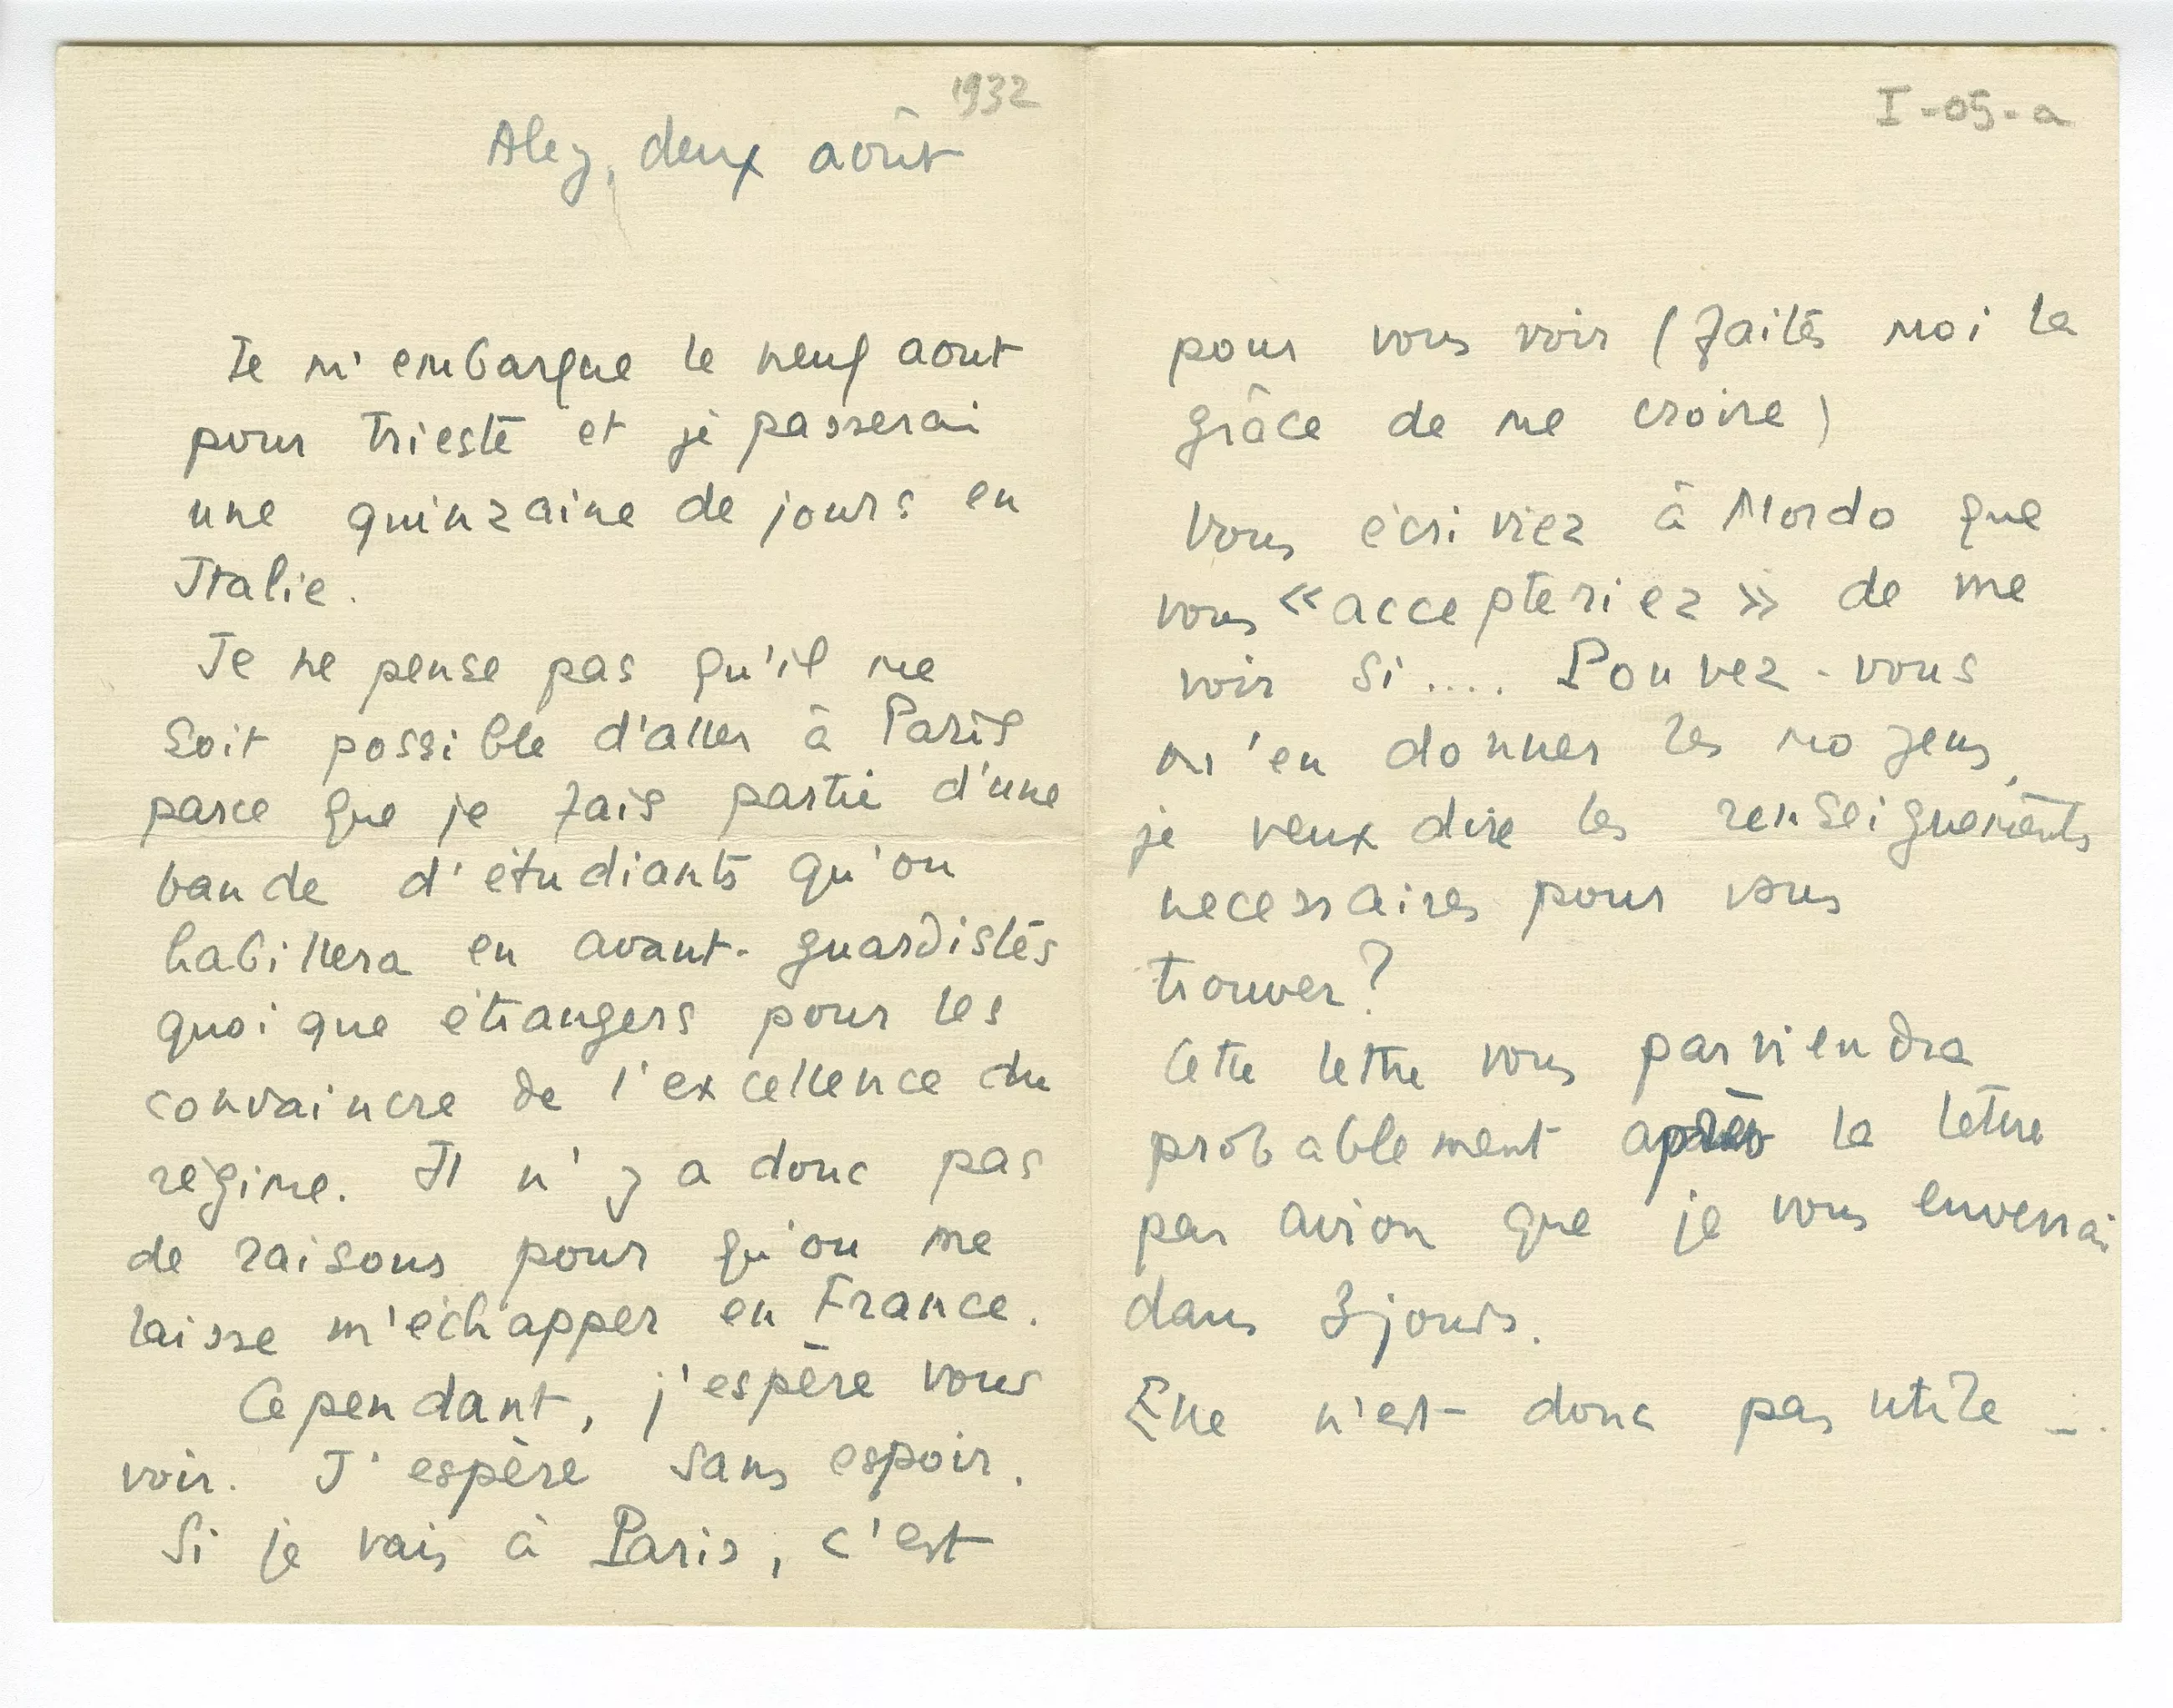 1932
Aley, deux août
Je m'embarque le neuf aout
pour Trieste et je passerai
une quinzaine de jours en
Italie.
Je ne pense pas qu'il me
soit possible d'aller à Paris
parce que je fais partie d'une
bande d'étudiants qu'on
habillera en avant-guardistes
quoique étrangers pour les
convaincre de l'excellence du
régime. Il n'y a donc pas
de raisons pour qu'on me
laisse m'échapper en France.
Cependant, j'espère vous
voir. J'espère sans espoir.
Si je vais à Paris, c'est
I-05-a
pour vous voir (faites moi la
grâce de me croire)
Vous écriviez à Mordo que
vous «accepteriez» de me
voir si.... Pouvez-vous
m'en donner les moyens,
je veux dire les renseignements
necessaires pour vous
trouver?
Cette lettre vous parviendra
probablement après la lettre
par avion que je vous enverrai
dans 3 jours.
Elle n'est donc pas utile _..